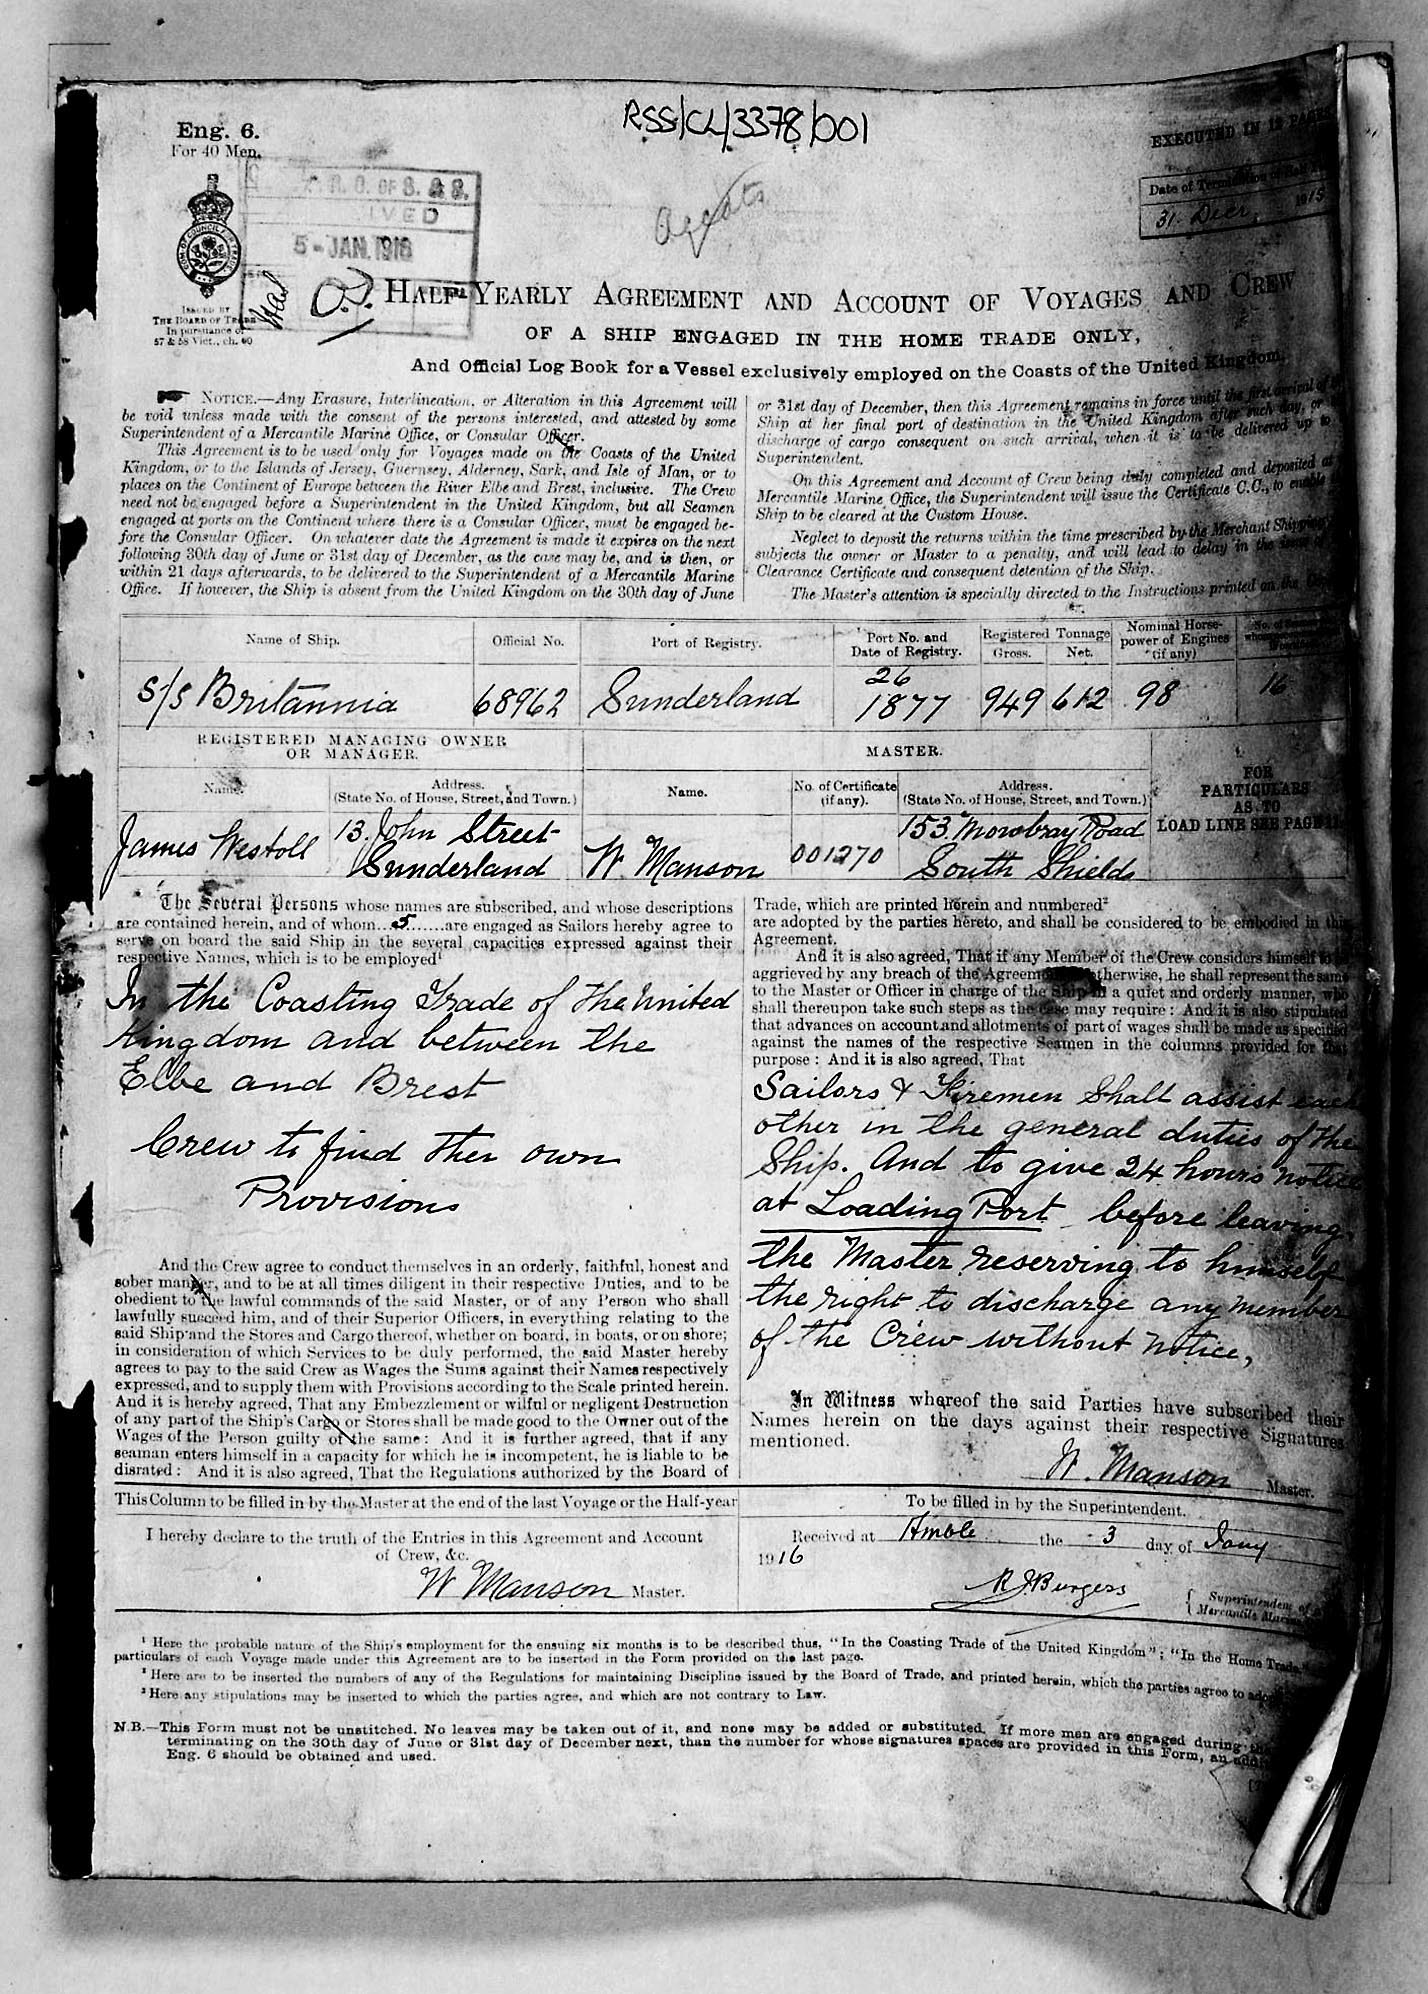 RSS/CL/3378/001
Eng. 6.
For 40 Men.
EXECUTED IN 12 PAGES
R. G. OF S. & S.
5 - JAN. 1916
Date of Termination of Half
31 Decr 1915
ISSUED BY
THE BOARD OF TRADE
In pursuance of
57 & 58 Vict., ch. 60
HALF-YEARLY AGREEMENT AND ACCOUNT OF VOYAGES AND CREW
OF A SHIP ENGAGED IN THE HOME TRADE ONLY,
And Official Log Book for a Vessel exclusively employed on the Coasts of the United Kingdom.
NOTICE.—Any Erasure, Interlineation, or Alteration in this Agreement will
be void unless made with the consent of the persons interested, and attested by some
Superintendent of a Mercantile Marine Office, or Consular Officer.
This Agreement is to be used only for Voyages made on the Coasts of the United
Kingdom, or to the Islands of Jersey, Guernsey, Alderney, Sark, and Isle of Man, or to
places on the Continent of Europe between the River Elbe and Brest, inclusive. The Crew
need not be engaged before a Superintendent in the United Kingdom, but all Seamen
engaged at ports on the Continent where there is a Consular Officer, must be engaged be-
fore the Consular Officer. On whatever date the Agreement is made it expires on the next
following 30th day of June or 31st day of December, as the case may be, and is then, or
within 21 days afterwards, to be delivered to the Superintendent of a Mercantile Marine
Office. If however, the Ship is absent from the United Kingdom on the 30th day of June
or 31st day of December, then this Agreement remains in force until the first arrival of
Ship at her final port of destination in the United Kingdom after such day, or
discharge of cargo consequent on such arrival, when it is to be delivered up to
Superintendent.
On this Agreement and Account of Crew being duly completed and deposited at
Mercantile Marine Office, the Superintendent will issue the Certificate C.C., to enable
Ship to be cleared at the Custom House.
Neglect to deposit the returns within the time prescribed by the Merchant Shipping
subjects the owner or Master to a penalty, and will lead to delay in the issue of
Clearance Certificate and consequent detention of the Ship.
The Master's attention is specially directed to the Instructions printed on the
Name of Ship. Official No. Port of Registry. Port No. and Date of Registry. Registered Tonnage Gross. Net. Nominal Horse-power of Engines (if any)
S/S Britannia 68962 Sunderland 26 1877 949 612 98 16
REGISTERED MANAGING OWNER OR MANAGER. MASTER.
Name. Address. (State No. of House, Street, and Town.) Name. No. of Certificate (if any). Address. (State No. of House, Street, and Town.)
FOR PARTICULARS AS TO LOAD LINE SEE PAGE 11
James Westoll 13 John Street Sunderland W. Manson 001270 153 Mowbray Road South Shields
The Several Persons whose names are subscribed, and whose descriptions
are contained herein, and of whom 5 are engaged as Sailors hereby agree to
serve on board the said Ship in the several capacities expressed against their
respective Names, which is to be employed¹
In the Coasting Trade of the United
Kingdom and between the
Elbe and Brest
Crew to find ther own
Provisions
And the Crew agree to conduct themselves in an orderly, faithful, honest and
sober manner, and to be at all times diligent in their respective Duties, and to be
obedient to the lawful commands of the said Master, or of any Person who shall
lawfully succeed him, and of their Superior Officers, in everything relating to the
said Ship and the Stores and Cargo thereof, whether on board, in boats, or on shore;
in consideration of which Services to be duly performed, the said Master hereby
agrees to pay to the said Crew as Wages the Sums against their Names respectively
expressed, and to supply them with Provisions according to the Scale printed herein.
And it is hereby agreed, That any Embezzlement or wilful or negligent Destruction
of any part of the Ship's Cargo or Stores shall be made good to the Owner out of the
Wages of the Person guilty of the same: And it is further agreed, that if any
seaman enters himself in a capacity for which he is incompetent, he is liable to be
disrated: And it is also agreed, That the Regulations authorized by the Board of
Trade, which are printed herein and numbered²
are adopted by the parties hereto, and shall be considered to be embodied in this
Agreement.
And it is also agreed, That if any Member of the Crew considers himself to be
aggrieved by any breach of the Agreement otherwise, he shall represent the same
to the Master or Officer in charge of the Ship in a quiet and orderly manner, who
shall thereupon take such steps as the case may require: And it is also stipulated
that advances on account and allotments of part of wages shall be made as specified
against the names of the respective Seamen in the columns provided for that
purpose: And it is also agreed, That
Sailors & Firemen Shall assist each
other in the general duties of the
Ship. And to give 24 hours notice
at Loading Port before leaving.
the Master reserving to himself
the right to discharge any member
of the Crew without notice,
In Witness whereof the said Parties have subscribed their
Names herein on the days against their respective Signatures
mentioned.
W. Manson Master.
This Column to be filled in by the Master at the end of the last Voyage or the Half-year
I hereby declare to the truth of the Entries in this Agreement and Account
of Crew, &c.
W Manson Master.
To be filled in by the Superintendent.
Received at Amble the 3 day of Jany
1916
R J Burgess
¹ Here the probable nature of the Ship's employment for the ensuing six months is to be described thus, "In the Coasting Trade of the United Kingdom"; "In the Home Trade."
particulars of each Voyage made under this Agreement are to be inserted in the Form provided on the last page.
² Here are to be inserted the numbers of any of the Regulations for maintaining Discipline issued by the Board of Trade, and printed herein, which the parties agree to adopt
³ Here any stipulations may be inserted to which the parties agree, and which are not contrary to Law.
N.B.—This Form must not be unstitched. No leaves may be taken out of it, and none may be added or substituted. If more men are engaged during the
terminating on the 30th day of June or 31st day of December next, than the number for whose signatures spaces are provided in this Form, an
Eng. 6 should be obtained and used.